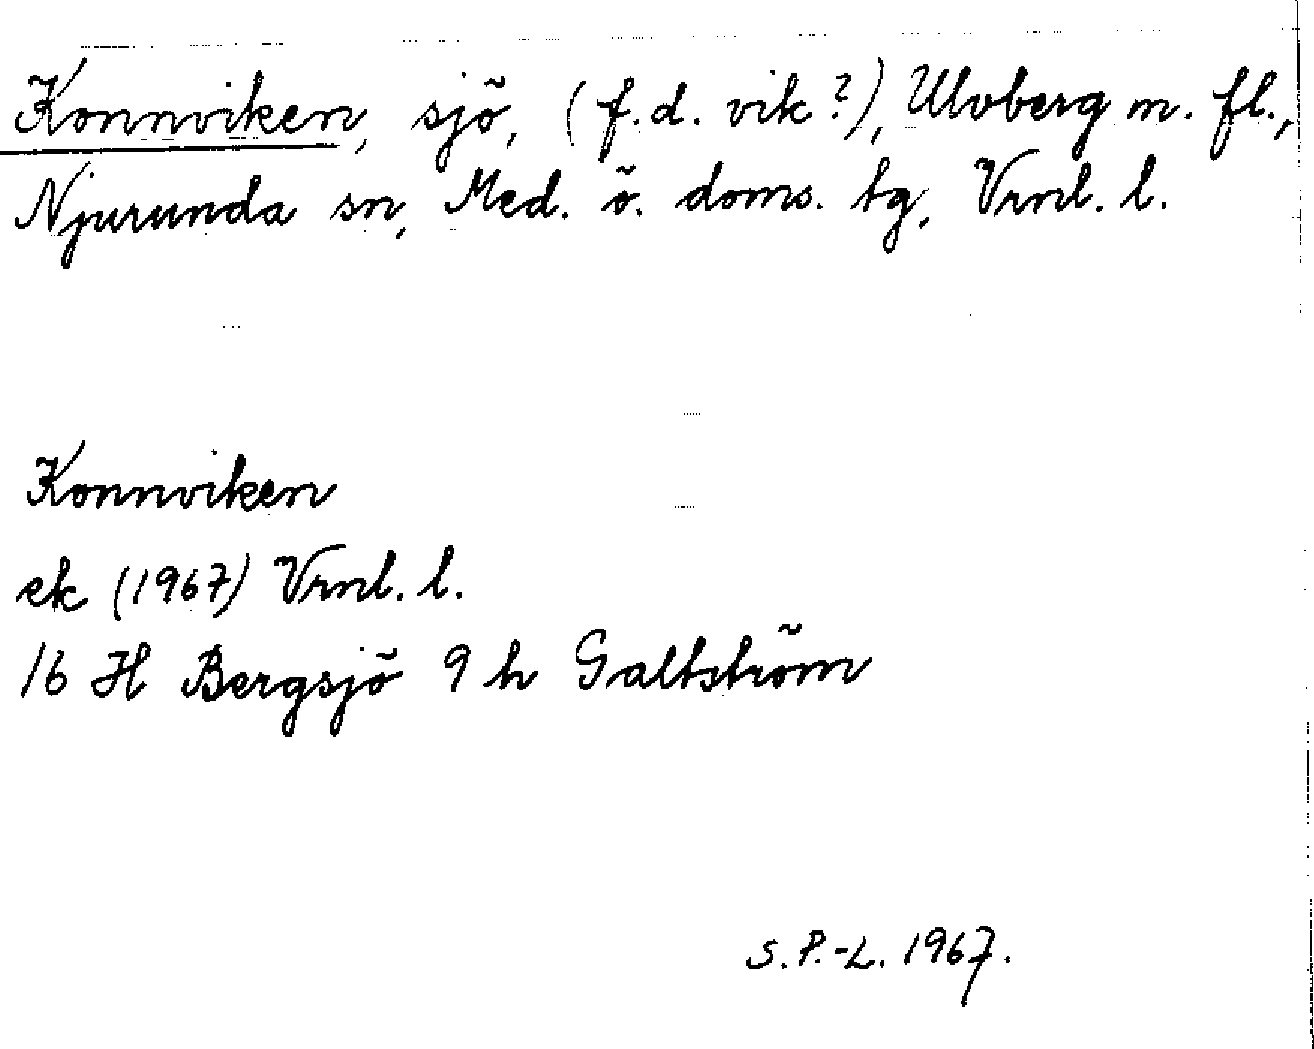 Konnviken, sjö, (f.d. vik?), Ulvberg m. fl.,
Njurunda sn, Med. ö. doms. tg, Vrnl. l.
Konnviken
ek (1967) Vrnl. l.
16 H Bergsjö 9 h Galtström
S. P.-L. 1967.